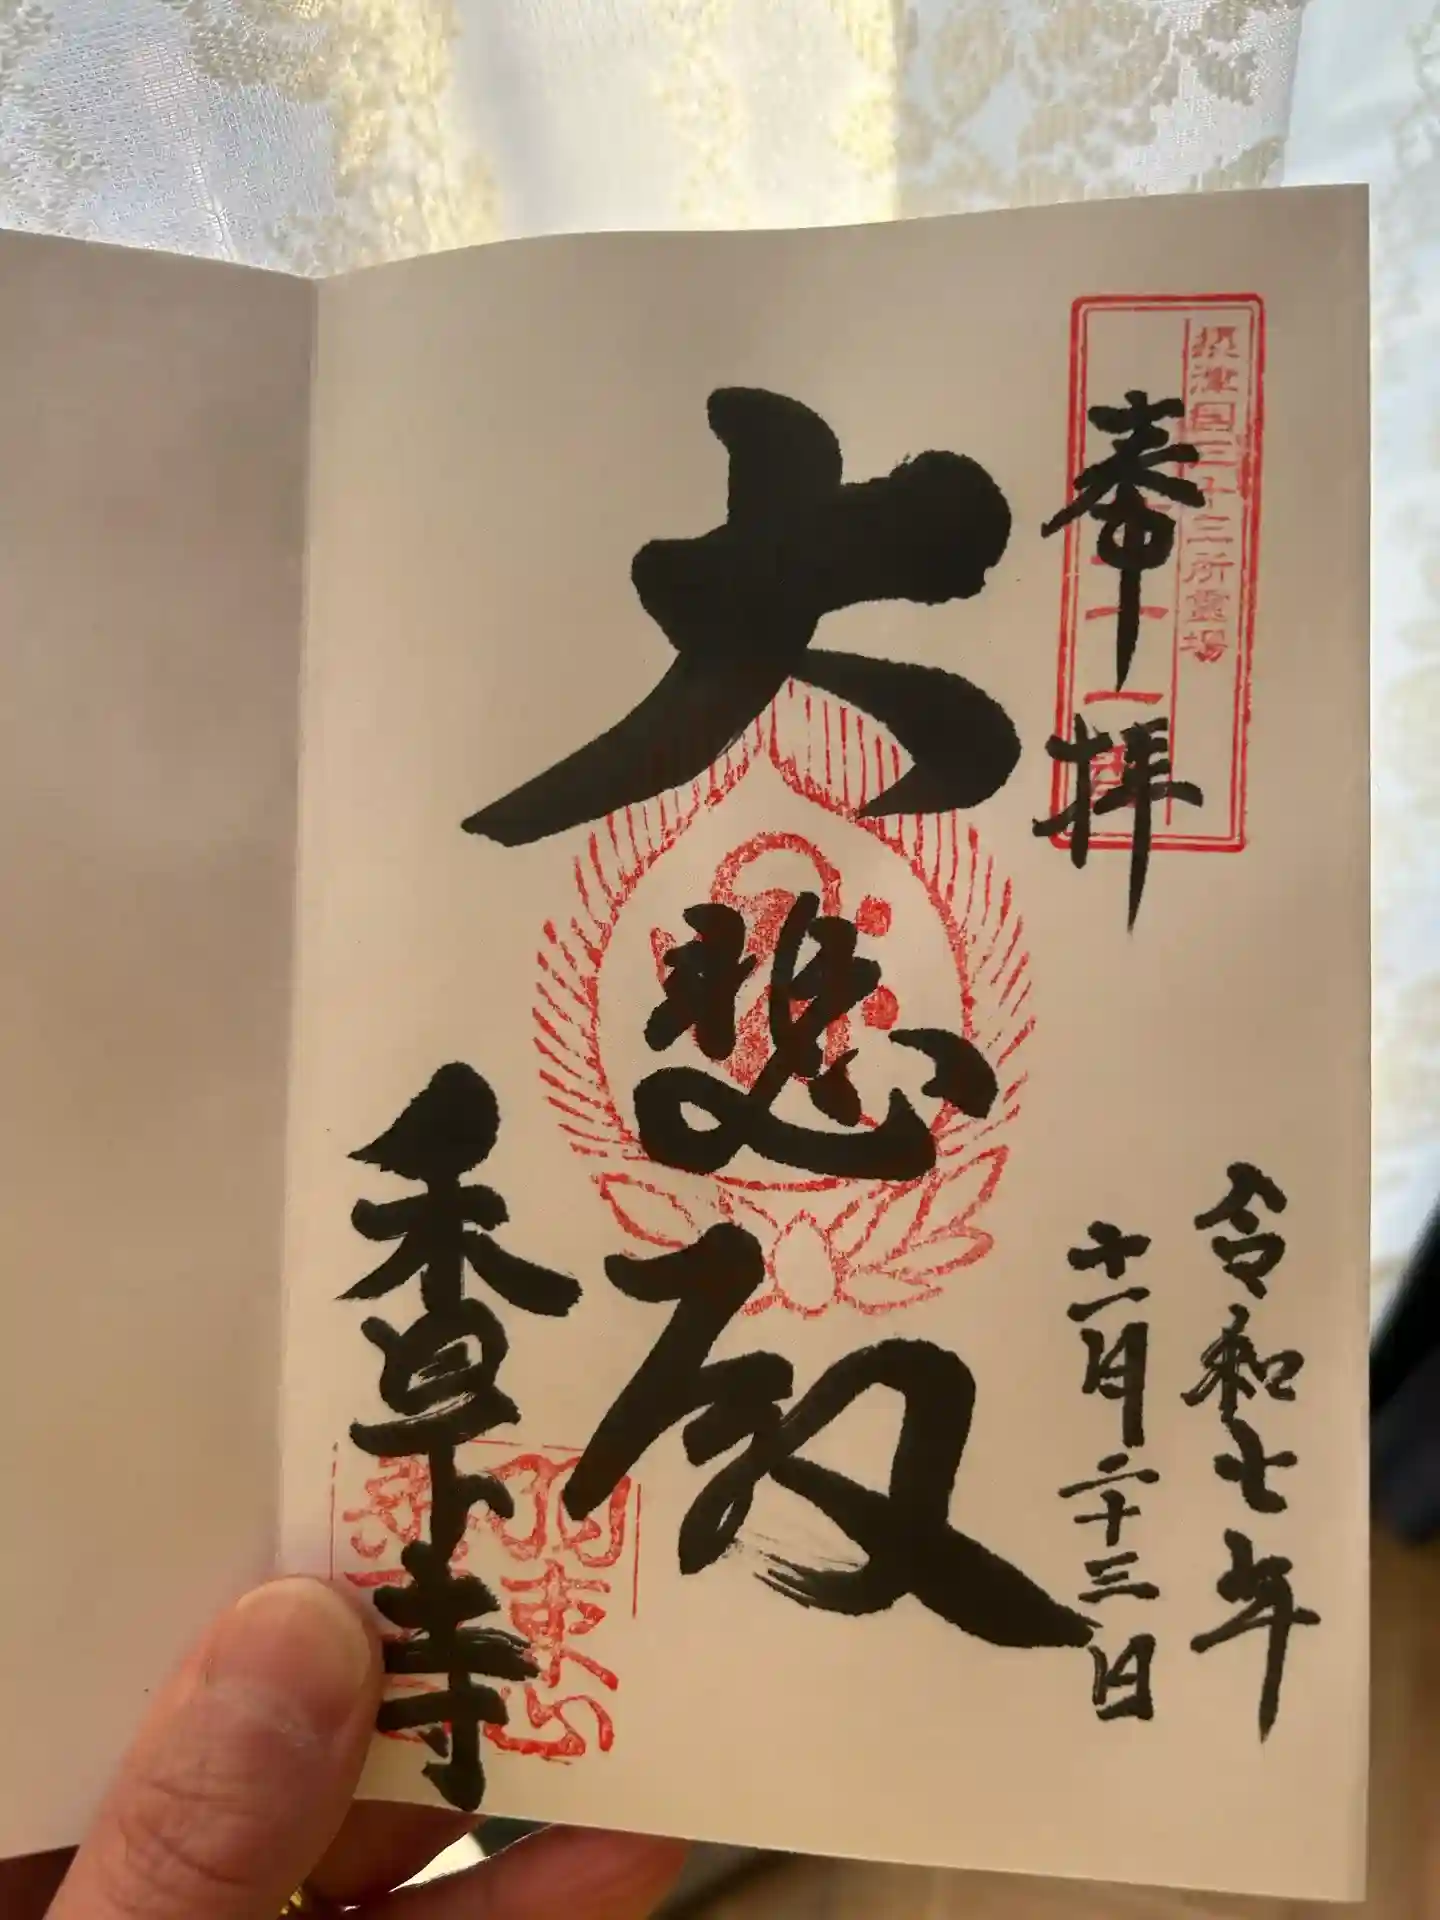 摂津国三十三所霊場
奉拝
令和七年
十一月二十三日
大悲殿
香下寺